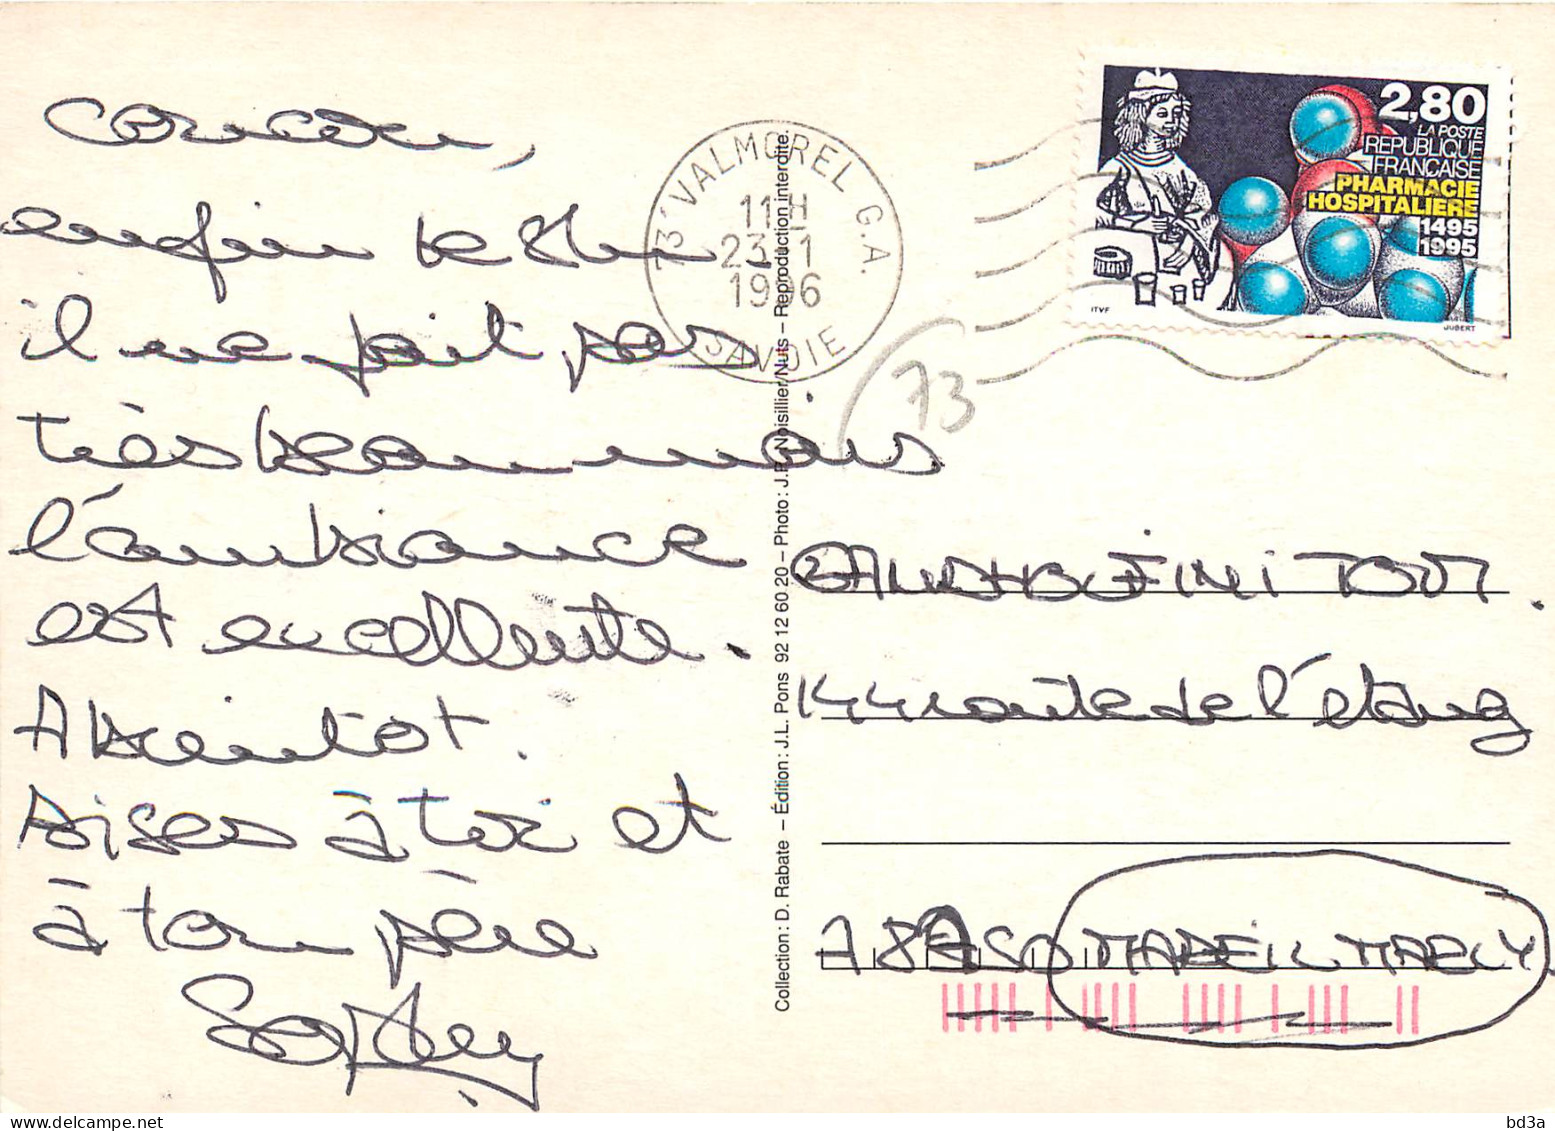 coucou,
enfin le ski.
il ne fait pas
très beau mais
l'ambiance
est excellente.
A bientot.
Bises à toi et
à ton père
73 VALMOREL G.A.
11H
23-1
1996
SAVOIE
2,80
LA POSTE
REPUBLIQUE
FRANÇAISE
PHARMACIE
HOSPITALIÈRE
1495
1995
ITVF
JUBERT
73
144 route de l'étang
MAREIL MARLY
Collection : D. Rabate – Édition : J.L. Pons 92 12 60 20 – Photo : J.F. Noisillier/Nuts – Reproduction interdite.
bd3a